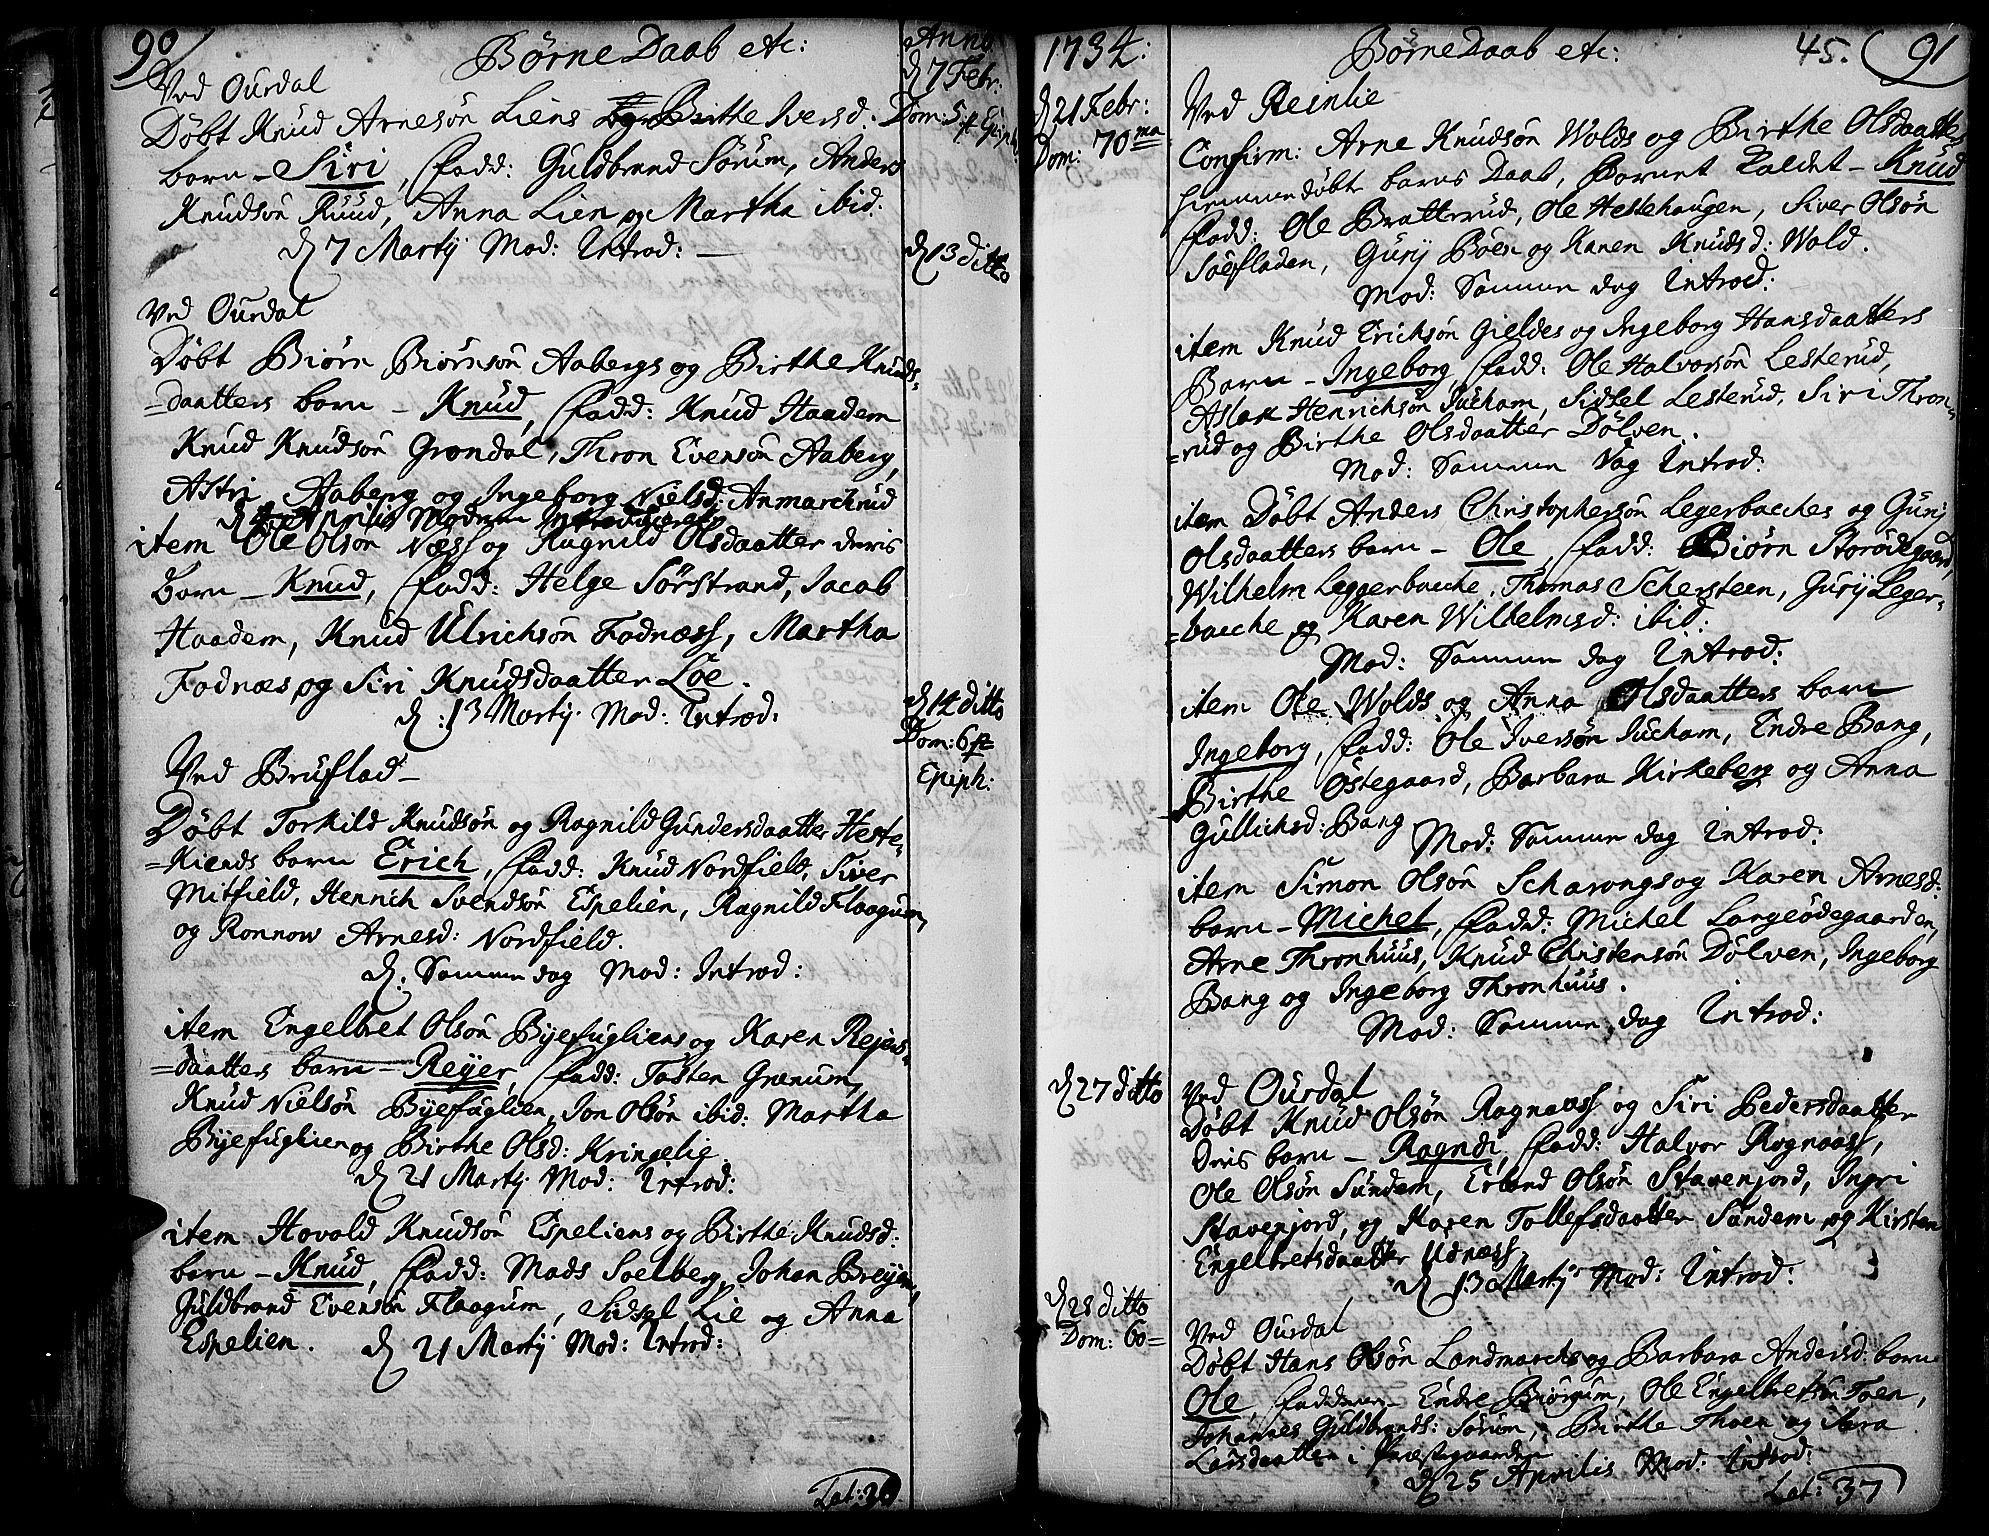 90 Børne Daab etc: Anno
Ved Ourdal
d 7 Febr:
Dom: 5 p Epiph:
Døbt Knud Arnesøn Liens og Birthe Iversd:
barn – Siri, fadd: Guldbrand Sørum, Anders
Knudsøn Ruud, Anna Lien og Martha ibid:
d 7 Martij Mod: Introd: –
d 13 ditto
Ved Ourdal
Døbt Biørn Biørnsøn Aabergs og Birthe Knuds-
=daatters barn – Knud, fadd: Knud Haadem
Knud Knudsøn Grøndal, Thron Evensøn Aaberg,
Astri Aaberg og Ingeborg Nielsd: Anmarchrud
d 4 Aprilis Modren Introduceret
item Ole Olsøn Næss og Ragnild Olsdaatter deris
Barn – Knud, fadd: Helge Sørstrand, Jacob
Haadem, Knud Ulrichsøn Fodnæss, Martha
Fodnæs og Siri Knudsdaatter Løe.
d: 13 Martij Mod: Introd:
d 14 ditto
Dom: 6 p
Epiph:
Ved Bruflad –
Døbt Torkild Knudsøn og Ragnild Gundersdaatter Heste-
=Kiends barn Erich, fadd: Knud Nordfield, Siver
Mitfield, Henrich Svendsøn Espelien, Ragnild Flaagum,
og Ronnow Arnesd: Nordfield.
d: Samme dag Mod: Introd:
item Engelbret Olsøn Byefugliens og Karen Rejers-
=daatters barn – Reyer, fadd: Tosten Granum,
Knud Nielsøn Byefuglien, Jon Olsøn ibid: Martha
Byefuglien og Birthe Olsd: Kringelie.
d 21 Martij Mod: Introd:
item Hovald Knudsøn Espeliens og Birthe Knudsd:
barn – Knud, fadd: Mads Soelberg, Johan Breyen,
Guldbrand Evensøn Flaagum, Sidsel Lie og Anna
Espelien. d 21 Martij Mod: Introd:
Lat: 36
1734: Børne Daab etc: 45. 91
d 21 Febr:
Dom: 70ma
Ved Reinlie
Confirm: Arne Knudsøn Wolds og Birthe Olsdaatters
hiemmedøbt barns Daab, Barnet Kaldet – Knud
fadd: Ole Bratterud, Ole Hestehaugen, Siver Olsøn
Søefladen, Gurij Bøen og Karen Knudsd: Wold.
Mod: Samme dag Introd:
item Knud Erichsøn Gieldes og Ingeborg Hansdaatters
Barn – Ingeborg, fadd: Ole Halvorsøn Lesterud,
Aslak Henrichsøn Jucham, Sidsel Lesterud, Siri Thron-
=rud og Birthe Olsdaatter Dølven.
Mod: Samme Dag Introd:
item Døbt Anders Christophersøn Legerbacches og Gurj
Olsdaatters barn – Ole, fadd: Biørn Storødegaard,
Wilhelm Leggerbacche, Thomas Schersteen, Gurij Leger-
=bacche og Karen Wilhelmsd: ibid:
Mod: Samme dag Introd:
item Ole Wolds og Anna Olsdaatters barn
Ingeborg, fadd: Ole Iversøn Jucham, Endre Bang,
Birthe Østegaard, Barbara Kirkeberg og Anna
Gullichsd: Bang Mod: Samme dag Introd:
item Simon Olsøn Scharvangs og Karen Arnesd:
barn – Michel, fadd: Michel Langeødegaarden,
Arne Thronhuus, Knud Christensøn Dølven, Ingeborg
Bang og Ingeborg Thronhuus.
Mod: Samme dag Introd:
d 27 ditto
Ved Ourdal
Døbt Knud Olsøn Ragnaass og Siri Pedersdaatter
Dris barn – Ragndi, fadd: Halvor Rognaass,
Ole Olsøn Sundem, Erland Olsøn Stavenjord, Ingri
Stavenjord, og Karen Tollefsdaatter Sundem og Kirsten
Engelbretsdaatter Udnæss.
d 13 Martij Mod: Introd:
d 28 ditto
Dom: 60=
Ved Ourdal
Døbt Hans Olsøn Landmarchs og Barbara Andersd: barn
Ole, faddere – Endre Biørgum, Ole Engelbretsøn Toen,
Johannes Guldbrands: Sørum, Birthe Thoen og Sara
Larsdaatter i Præstegaarden
d 25 Aprilis Mod: Introd:
Lat: 37